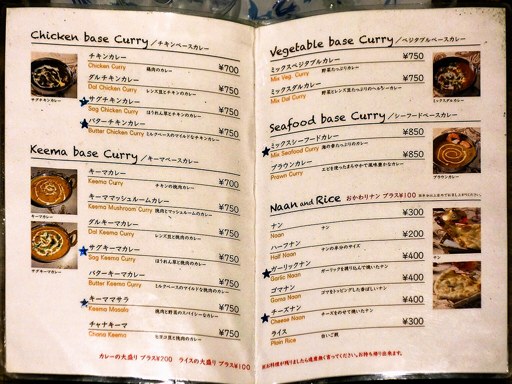 Chicken base Curry／チキンベースカレー
チキンカレー
Chicken Curry 鶏肉のカレー ¥700
ダルチキンカレー
Dal Chicken Curry レンズ豆とチキンのカレー ¥750
サグチキンカレー
Sag Chicken Curry ほうれん草とチキンのカレー ¥750
バターチキンカレー
Butter Chicken Curry ミルクベースのマイルドなチキンカレー ¥750
サグチキンカレー
Keema base Curry／キーマベースカレー
キーマカレー
Keema Curry チキンの挽肉のカレー ¥700
キーママッシュルームカレー
Keema Mushroom Curry 挽肉とマッシュルームのカレー ¥750
ダルキーマカレー
Dal Keema Curry レンズ豆と挽肉のカレー ¥750
サグキーマカレー
Sag Keema Curry ほうれん草と挽肉のカレー ¥750
バターキーマカレー
Butter Keema Curry ミルクベースのマイルドな挽肉のカレー ¥750
キーママサラ
Keema Masala 挽肉と野菜のスパイシーなカレー ¥750
チャナキーマ
Chana Keema ヒヨコ豆と挽肉のカレー ¥750
キーマカレー
サグキーマカレー
カレーの大盛り プラス¥200 ライスの大盛り プラス¥100
Vegetable base Curry／ベジタブルベースカレー
ミックスベジタブルカレー
Mix Veg. Curry 野菜たっぷりカレー ¥750
ミックスダルカレー
Mix Dal Curry 野菜とレンズ豆たっぷりのヘルシーカレー ¥750
ミックスダルカレー
Seafood base Curry／シーフードベースカレー
ミックスシーフードカレー
Mix Seafood Curry 海の幸たっぷりのカレー ¥850
プラウンカレー
Prawn Curry エビを使ったまろやかで風味豊かなカレー ¥850
プラウンカレー
Naan and Rice おかわりナン プラス¥100
ナン
Naan ナン ¥300
ハーフナン
Half Naan ナンの半分のサイズ ¥200
ガーリックナン
Garlic Naan ガーリックを練り込んで焼いたナン ¥400
ゴマナン
Goma Naan ゴマをトッピングした香ばしいナン ¥400
チーズナン
Cheese Naan チーズをのせて焼いたナン ¥400
ライス
Plain Rice 白いご飯 ¥300
ナン